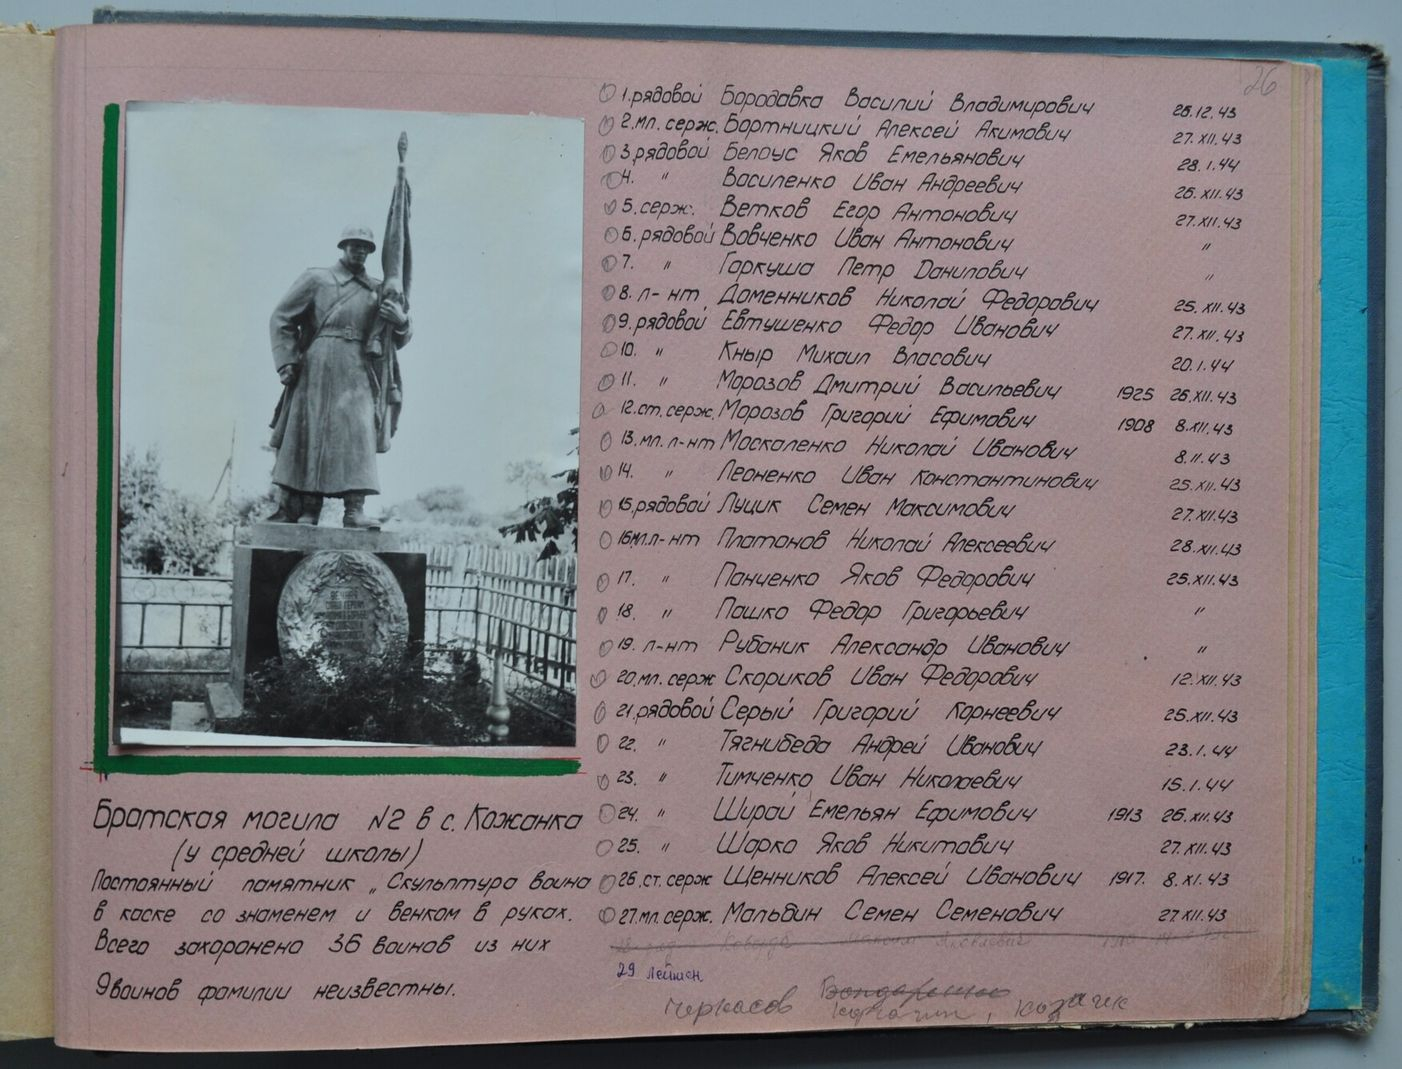 26
1. рядовой Бородавка Василий Владимирович 26.12.43
2. мл. серж. Бортницкий Алексей Акимович 27.XII.43
3. рядовой Белоус Яков Емельянович 28.1.44
4. " Василенко Иван Андреевич 26.XII.43
5. серж. Ветков Егор Антонович 27.XII.43
6. рядовой Вовченко Иван Антонович "
7. " Гаркуша Петр Данилович "
8. л-нт Доменников Николай Федорович 25.XII.43
9. рядовой Евтушенко Федор Иванович 27.XII.43
10. " Кныр Михаил Власович 20.1.44
11. " Морозов Дмитрий Васильевич 1925 26.XII.43
12. ст. серж. Морозов Григорий Ефимович 1908 8.XII.43
13. мл. л-нт Москаленко Николай Иванович 8.11.43
14. " Леоненко Иван Константинович 25.XII.43
15. рядовой Луцик Семен Максимович 27.XII.43
16 мл. л-нт Платонов Николай Алексеевич 28.XII.43
17. " Панченко Яков Федорович 25.XII.43
18. " Пашко Федор Григорьевич "
19. л-нт Рубаник Александр Иванович "
20. мл. серж Скориков Иван Федорович 12.XII.43
21. рядовой Серый Григорий Корнеевич 25.XII.43
22. " Тягнибеда Андрей Иванович 23.1.44
23. " Тимченко Иван Николаевич 15.1.44
24. " Ширай Емельян Ефимович 1913 26.XII.43
25. " Шарко Яков Никитович 27.XII.43
26. ст. серж Щенников Алексей Иванович 1917. 8.XI.43
27. мл. серж. Мальбин Семен Семенович 27.XII.43
29 Лейшен
Черкасов
Козачк
Братская могила №2 в с. Кожанка
(у средней школы)
Постоянный памятник „Скульптура воина
в каске со знаменем и венком в руках.
Всего захоронено 36 воинов из них
9 воинов фамилии неизвестны.